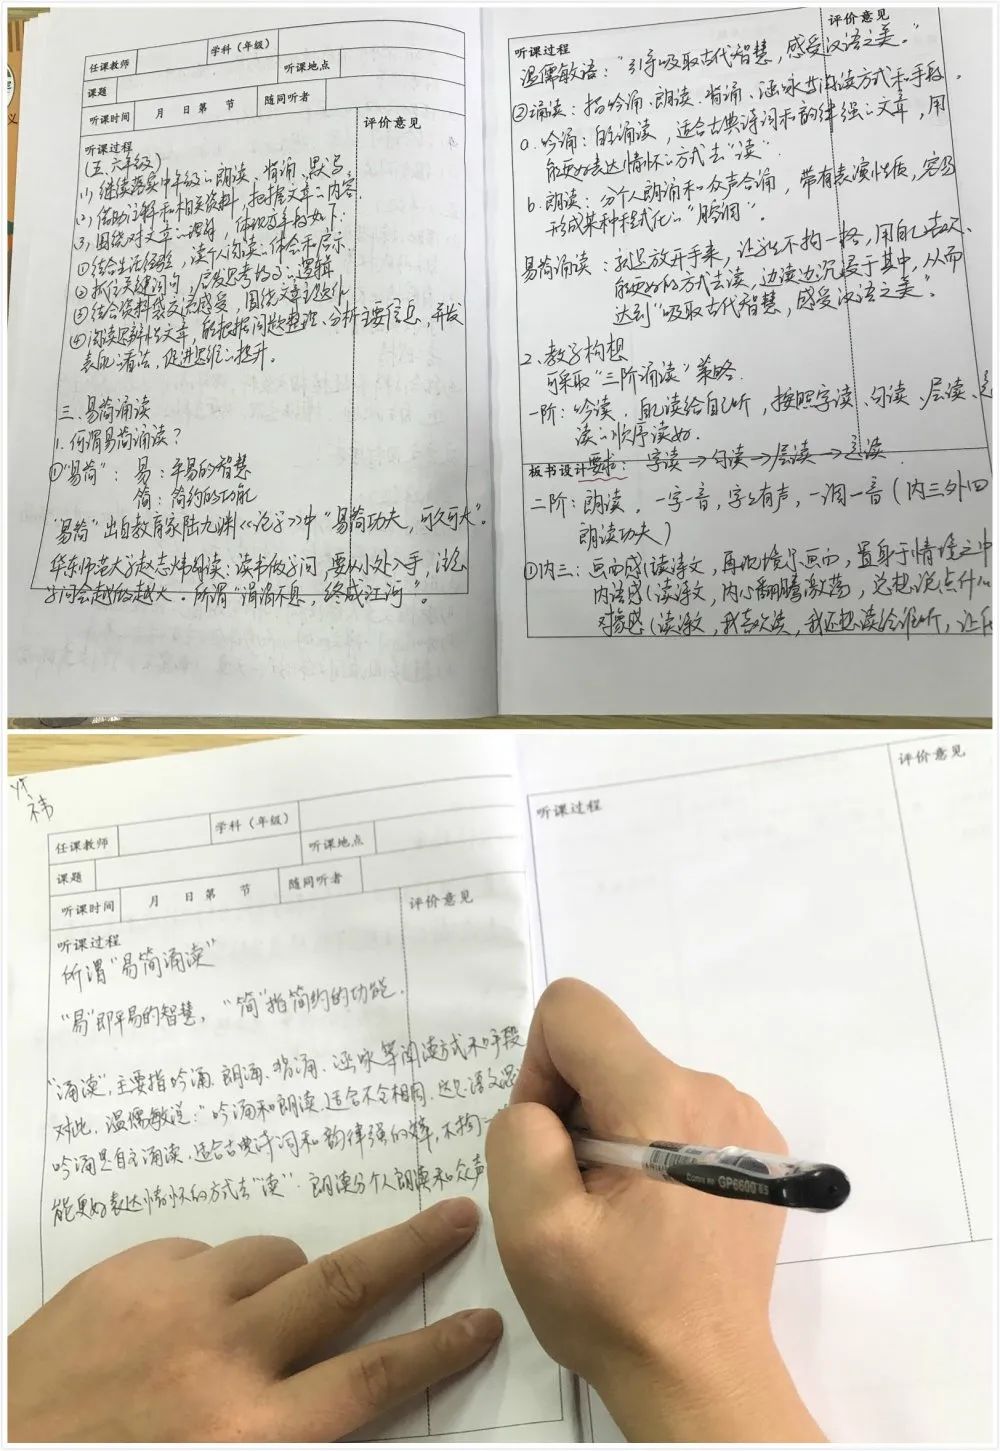 任课教师
学科（年级）
课题
听课地点
听课时间 月 日 第 节 随同听者
听课过程
评价意见
（五、六年级）
(1)、继续落实中年级的朗读、背诵、默写。
(2)、借助注解和相关资料，把握文章的内容.
(3)、围绕对文章的理解，体现在手段如下：
①结合生活经验，读个人阅读的体会和启示.
②抓住关键词句，启发思考的的逻辑
③结合资料谈交流感受，围绕文章主题
④阅读思辨性文章，能把握问题整理、分析主要信息，并发
表的看法，促进思维的提升。
三、易简诵读
1.何谓易简诵读？
①"易简"：易：平易的智慧
简：简约的功能
"易简"出自教育家陆九渊《论学》中"易简功夫，可久可大"。
华东师范大学赵志炜朗读：读书的学问，要从小处入手，
学问会越的越大。所谓"涓涓不息，终成江河"。
听课过程
评价意见
温儒敏语："引导吸取古代智慧，感受汉语之美。"
②诵读：指吟诵、朗读、背诵、涵咏等阅读方式和手段。
a.吟诵：自主诵读，适合古典诗词和韵律强的文章，用
能更好表达情怀的方式去"读".
b.朗读：分个人朗诵和众声合诵，带有表演性质，容易
形成某种程式化的"腔调"。
易简诵读：就是放开手来，让学生不拘一格，用自己喜欢、
能更好的方式去读，边读边沉浸于其中，从而
达到"吸取古代智慧，感受汉语之美"。
2、教学构想
可采取"三阶诵读"策略.
一阶：吟读.自己读给自己听，按照字读、句读、层读、
读的顺序读好.
板书设计要求：字读→句读→层读→
二阶：朗读.一字一音，字字有声，一调一音（内三外四
朗读功夫）
①内三：画面感(读诗文，再现境界画面，置身于情境之中
内语感(读诗文，内心翻腾激荡，总想说点什么
对象感(读诗文，我喜欢读，我还想读给谁听，让
祎
任课教师
学科（年级）
课题
听课地点
听课时间 月 日 第 节 随同听者
听课过程
评价意见
所谓"易简诵读"
"易"即平易的智慧，"简"指简约的功能.
"诵读"，主要指吟诵、朗诵、背诵、涵咏等阅读方式和手段
对此，温儒敏说："吟诵和朗读适合不全相同，这是语文
吟诵是自主诵读，适合古典诗词和韵律强的文章，不拘一
能更好表达情怀的方式去"读"．朗读分个人朗读和众声
听课过程
评价意见
GP6600 0.5